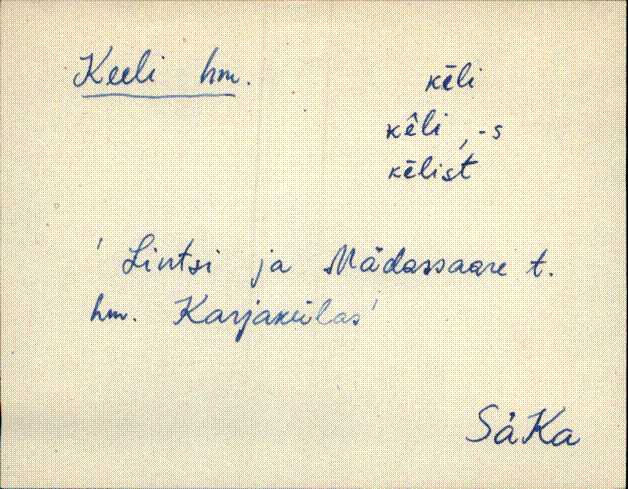 Keeli hm.
kēli
kêli, -s
kēlist
' Lintsi ja Mädassaare t.
hm. Karjakülas'
SäKa